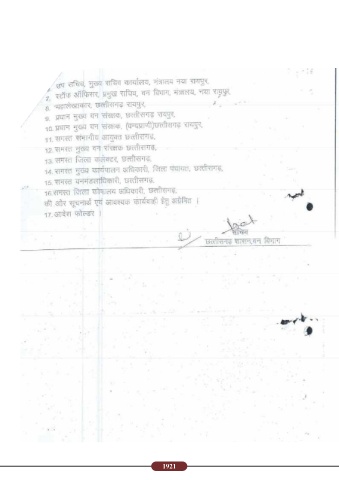 6. उप सचिव, मुख्य सचिव कार्यालय, मंत्रालय नया रायपुर,
7. स्टॉफ ऑफिसर, प्रमुख सचिव, वन विभाग, मंत्रालय, नया रायपुर,
8. महालेखाकार, छत्तीसगढ़ रायपुर,
9. प्रधान मुख्य वन संरक्षक, छत्तीसगढ़ रायपुर,
10. प्रधान मुख्य वन संरक्षक, (वन्यप्राणी)छत्तीसगढ़ रायपुर,
11. समस्त संभागीय आयुक्त छत्तीसगढ़,
12. समस्त मुख्य वन संरक्षक छत्तीसगढ़,
13. समस्त जिला कलेक्टर, छत्तीसगढ़,
14. समस्त मुख्य कार्यपालन अधिकारी, जिला पंचायत, छत्तीसगढ़,
15. समस्त वनमंडलाधिकारी, छत्तीसगढ़,
16. समस्त जिला कोषालय अधिकारी, छत्तीसगढ़,
की ओर सूचनार्थ एवं आवश्यक कार्यवाही हेतु अग्रेषित ।
17. आदेश फोल्डर ।
सचिव
छत्तीसगढ़ शासन,वन विभाग
1921